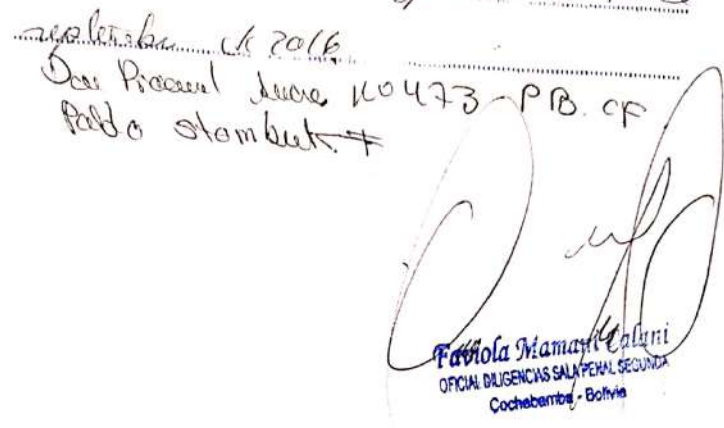 septiembre de 2016
Dom Procesal Sucre No 473 PB. of
Pablo
Faviola Mamani Calani
OFICIAL DILIGENCIAS SALA PENAL SEGUNDA
Cochabamba - Bolivia